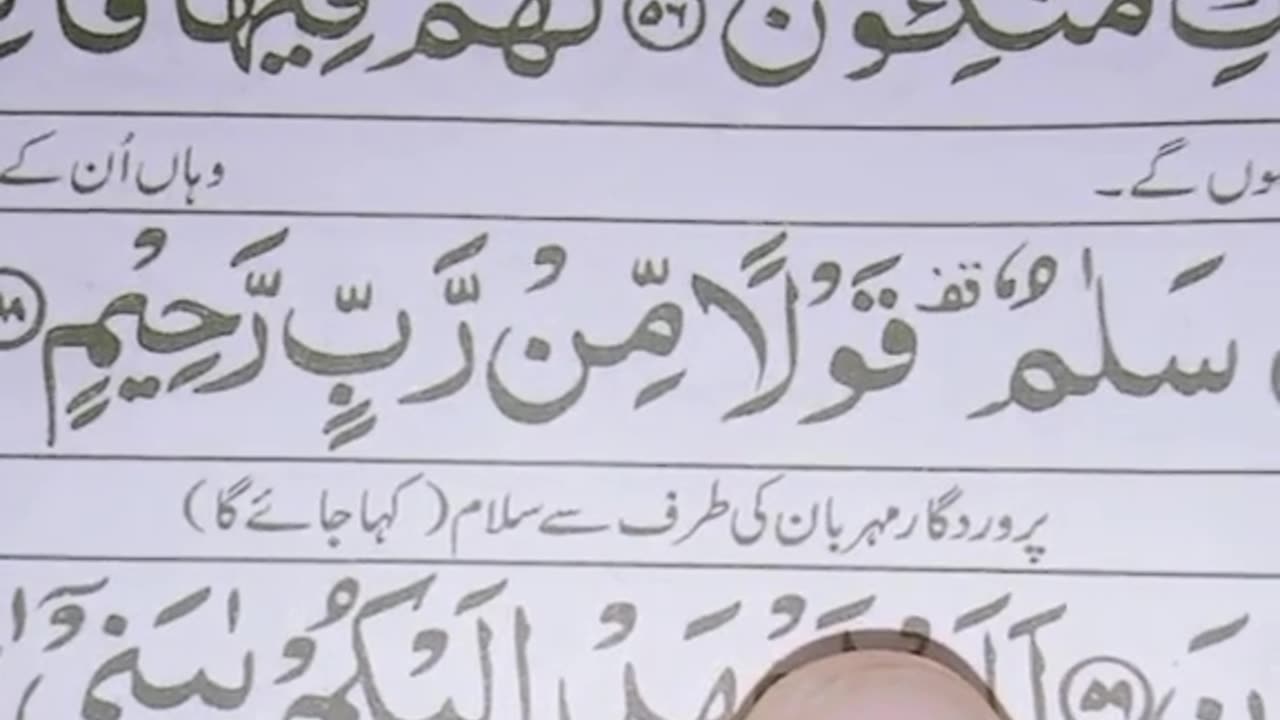 مُتَّكِـُٔونَ ۝٥٦ لَهُمْ فِيهَا
ہوں گے۔ وہاں اُن کے
سَلٰمٌ قف قَوْلًا مِّنْ رَّبٍّ رَّحِيْمٍ ۝٥٨
پروردگار مہربان کی طرف سے سلام (کہا جائے گا)
۝٥٩ اِلَيْكُمْ يٰبَنِيْٓ